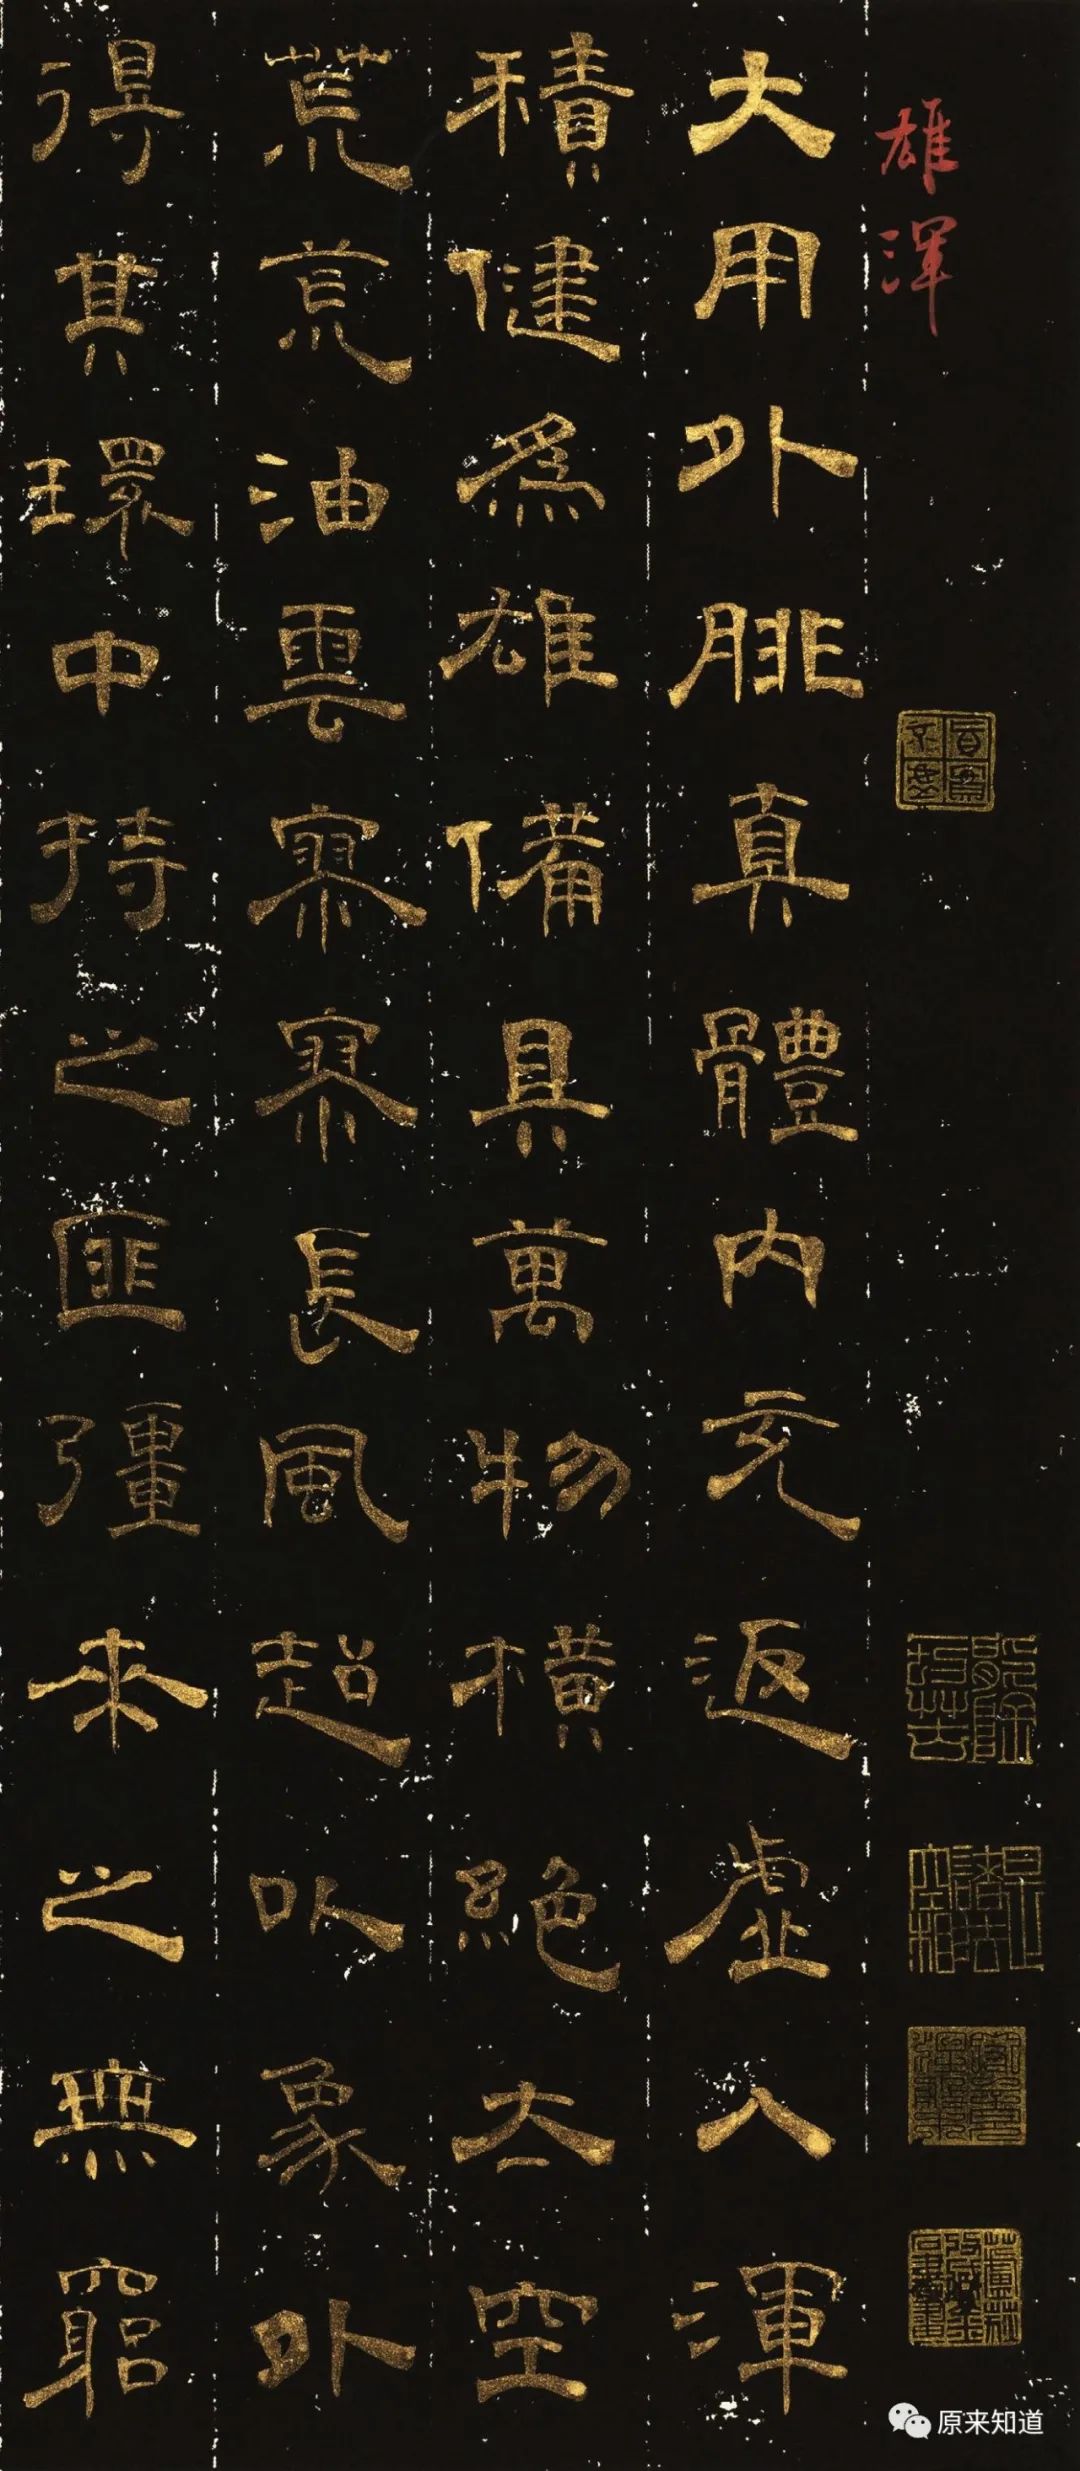 雄渾
大用外腓真體内充返虛入渾
積健爲雄備具萬物橫絕太空
荒荒油雲寥寥長風超以象外
得其環中持之匪彊來之無窮
原来知道